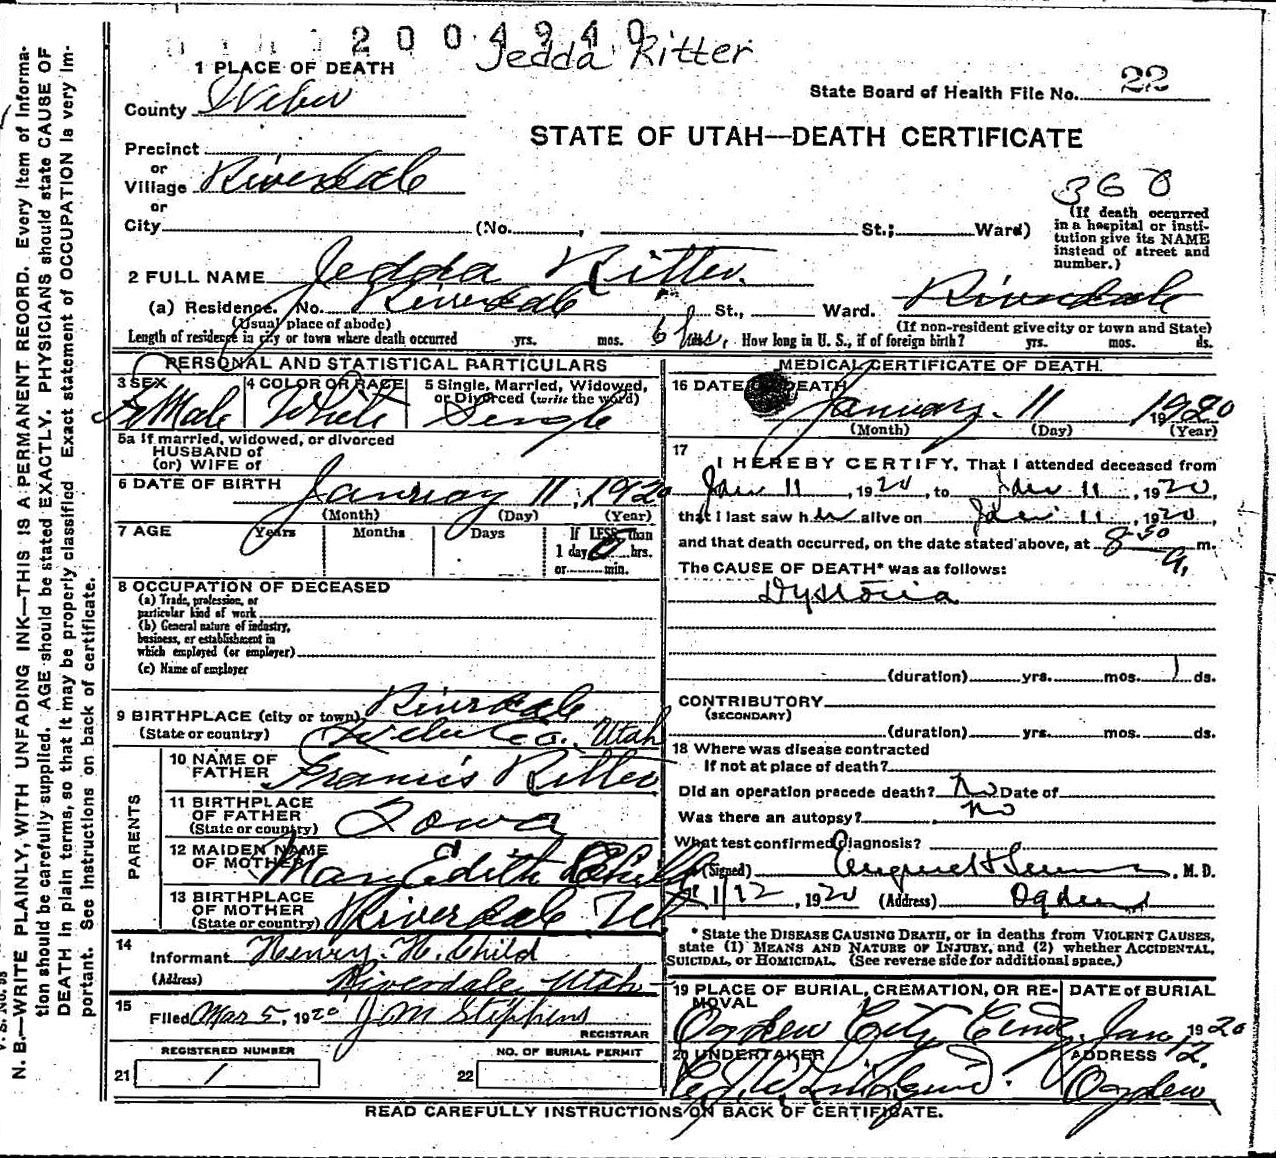 2004940
Jedda Ritter
1 PLACE OF DEATH
County Weber
State Board of Health File No. 22
STATE OF UTAH—DEATH CERTIFICATE
Precinct
or
Village Riverdale
or
City (No. , St.; Ward)
360
(If death occurred
in a hospital or insti-
tution give its NAME
instead of street and
number.)
2 FULL NAME Jedda Ritter.
(a) Residence. No. Riverdale St., Ward. Riverdale
(Usual place of abode) (If non-resident give city or town and State)
Length of residence in city or town where death occurred yrs. mos. 6 hrs. How long in U. S., if of foreign birth? yrs. mos. ds.
PERSONAL AND STATISTICAL PARTICULARS
3 SEX 4 COLOR OR RACE 5 Single, Married, Widowed,
or Divorced (write the word)
Fe Male White Single
5a If married, widowed, or divorced
HUSBAND of
(or) WIFE of
6 DATE OF BIRTH January 11, 1920
(Month) (Day) (Year)
7 AGE Years Months Days If LESS than
1 day 6 hrs.
or min.
8 OCCUPATION OF DECEASED
(a) Trade, profession, or
particular kind of work
(b) General nature of industry,
business, or establishment in
which employed (or employer)
(c) Name of employer
9 BIRTHPLACE (city or town) Riverdale
(State or country) Weber Co. Utah
PARENTS
10 NAME OF
FATHER Francis Ritter
11 BIRTHPLACE
OF FATHER
(State or country) Iowa
12 MAIDEN NAME
OF MOTHER Mary Edith Child
13 BIRTHPLACE
OF MOTHER
(State or country) Riverdale Ut
14
Informant Henry H. Child
(Address) Riverdale Utah
15
Filed Mar 5, 1920 J M Stephens
REGISTRAR
REGISTERED NUMBER NO. OF BURIAL PERMIT
21 1 22
MEDICAL CERTIFICATE OF DEATH.
16 DATE OF DEATH January. 11 1920
(Month) (Day) (Year)
17
I HEREBY CERTIFY, That I attended deceased from
Jan 11, 1920, to Jan 11, 1920,
that I last saw her alive on Jan 11, 1920
and that death occurred, on the date stated above, at 8 50 a. m.
The CAUSE OF DEATH* was as follows:
Dystocia
(duration) yrs. mos. 1 ds.
CONTRIBUTORY
(SECONDARY)
(duration) yrs. mos. ds.
18 Where was disease contracted
If not at place of death?
Did an operation precede death? No Date of
Was there an autopsy? No
What test confirmed diagnosis?
(Signed) , M. D.
1/12, 1920 (Address) Ogden
* State the DISEASE CAUSING DEATH, or in deaths from VIOLENT CAUSES,
state (1) MEANS AND NATURE OF INJURY, and (2) whether ACCIDENTAL,
SUICIDAL, or HOMICIDAL. (See reverse side for additional space.)
19 PLACE OF BURIAL, CREMATION, OR RE-
MOVAL
Ogden City Cem.
DATE of BURIAL
Jan. 12, 1920
20 UNDERTAKER
ADDRESS
Ogden
READ CAREFULLY INSTRUCTIONS ON BACK OF CERTIFICATE.
N. B.—WRITE PLAINLY, WITH UNFADING INK—THIS IS A PERMANENT RECORD. Every item of informa-
tion should be carefully supplied. AGE should be stated EXACTLY. PHYSICIANS should state CAUSE OF
DEATH in plain terms, so that it may be properly classified. Exact statement of OCCUPATION is very im-
portant. See instructions on back of certificate.